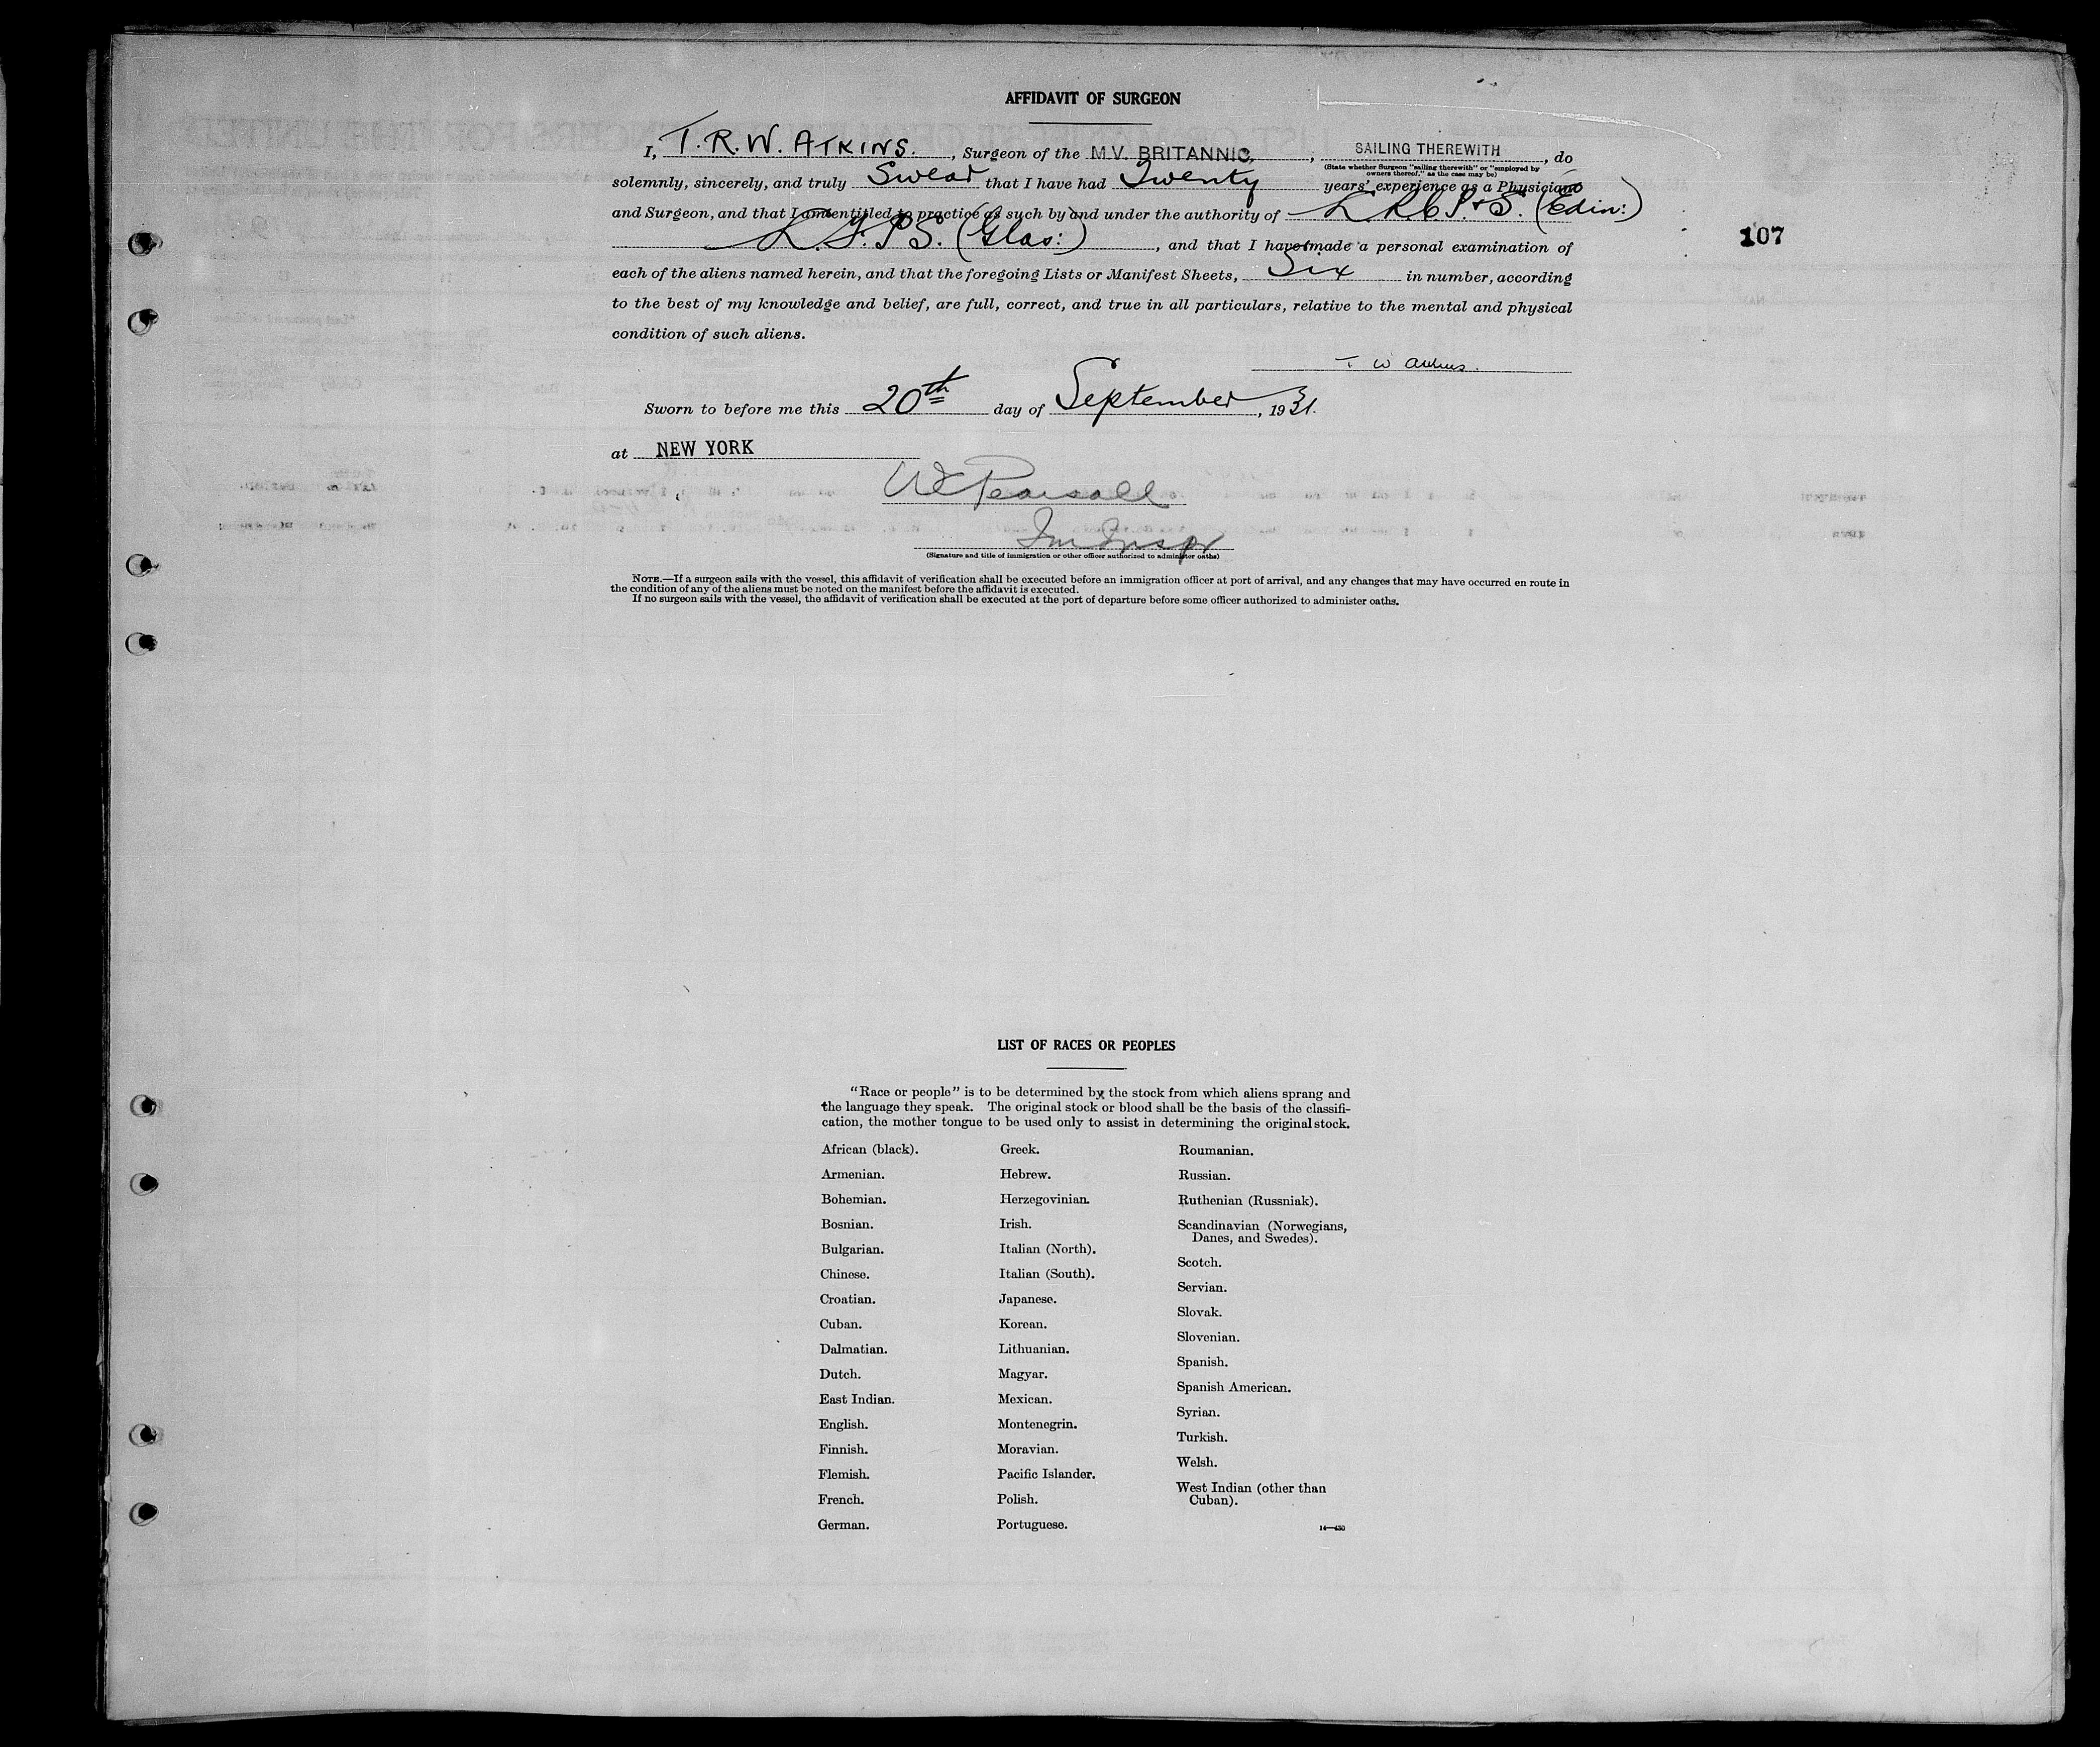 AFFIDAVIT OF SURGEON
I, T. R. W. ATKINS. , Surgeon of the M.V. BRITANNIC, , SAILING THEREWITH , do
(State whether Surgeon "sailing therewith" or "employed by
owners thereof," as the case may be)
solemnly, sincerely, and truly Swear that I have had Twenty years' experience as a Physician
and Surgeon, and that I am entitled to practice as such by and under the authority of L.R.C.P.&S. (Edin:)
107
L.F.P.S. (Glas:) , and that I have made a personal examination of
each of the aliens named herein, and that the foregoing Lists or Manifest Sheets, Six in number, according
to the best of my knowledge and belief, are full, correct, and true in all particulars, relative to the mental and physical
condition of such aliens.
T W Atkins.
Sworn to before me this 20th day of September , 1931.
at NEW YORK
Pearsall
Im Inspr
(Signature and title of immigration or other officer authorized to administer oaths)
NOTE.—If a surgeon sails with the vessel, this affidavit of verification shall be executed before an immigration officer at port of arrival, and any changes that may have occurred en route in
the condition of any of the aliens must be noted on the manifest before the affidavit is executed.
If no surgeon sails with the vessel, the affidavit of verification shall be executed at the port of departure before some officer authorized to administer oaths.
LIST OF RACES OR PEOPLES
"Race or people" is to be determined by the stock from which aliens sprang and
the language they speak. The original stock or blood shall be the basis of the classifi-
cation, the mother tongue to be used only to assist in determining the original stock.
African (black).
Armenian.
Bohemian.
Bosnian.
Bulgarian.
Chinese.
Croatian.
Cuban.
Dalmatian.
Dutch.
East Indian.
English.
Finnish.
Flemish.
French.
German.
Greek.
Hebrew.
Herzegovinian.
Irish.
Italian (North).
Italian (South).
Japanese.
Korean.
Lithuanian.
Magyar.
Mexican.
Montenegrin.
Moravian.
Pacific Islander.
Polish.
Portuguese.
Roumanian.
Russian.
Ruthenian (Russniak).
Scandinavian (Norwegians,
Danes, and Swedes).
Scotch.
Servian.
Slovak.
Slovenian.
Spanish.
Spanish American.
Syrian.
Turkish.
Welsh.
West Indian (other than
Cuban).
14—430